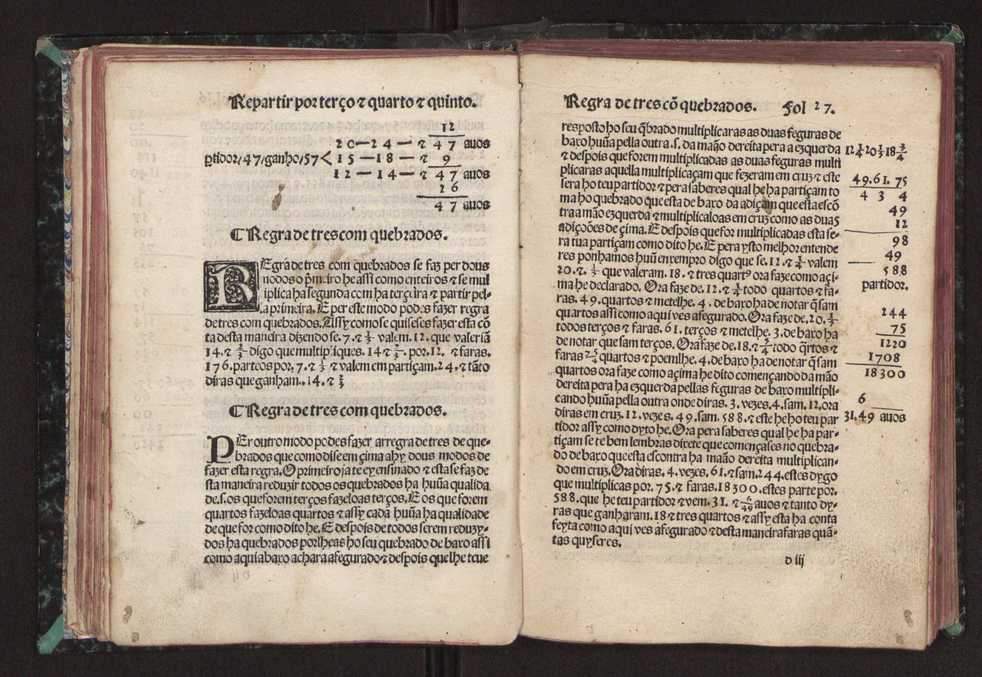 Repartir por terço ⁊ quarto ⁊ quinto.
12
20—24—⁊ 47 auos
ptidor/47/ganho/57< 15—18—⁊ 9
12—14—⁊ 47 auos
26
47 auos
☾Regra de tres com quebrados.
REgra de tres com quebrados se faz per dous
modos o pmeiro he assi como enteiros ⁊ se mul
iplica ha segunda com ha terceira ⁊ partir pel-
a primeira. E per este modo podes fazer regra
de tres com quebrados. Assy como se quiseses fazer esta cõ
ta desta maneira dizendo se. 7. ⁊ ½ valem. 12. que valeriã
14. ⁊ ⅔ digo que multipliques. 14 ⁊ ⅔. por. 12. ⁊ faras.
176. parteos por. 7. ⁊ ½ ⁊ valem em partiçam. 24. ⁊ tãto
diras que ganham. 14. ⁊ ⅔
☾Regra de tres com quebrados.
PEr outro modo podes fazer a rregra de tres de que-
brados que como dise em çima ahy dous modos de
fazer esta regra. O primeiro ja te ey ensinado ⁊ esta se faz de
sta maneira reduzir todos os quebrados ha hũa qualida
de. s. os que forem terços fazeloas terços. E os que forem
quartos fazeloas quartos ⁊ assy cada hũa ha qualidade
de que for como dito he. E despois de todos serem reduzy-
dos ha quebrados porlheas ho seu quebrado de baxo assi
como aqui abaxo achara afegurado ⁊ despois que lhe teue
Regra de tres cõ quebrados. Fol 27.
resposto ho seu q̃brado multiplicaras as duas feguras de
baxo hũa pella outra. s. da maão dereita pera a ezquerda
⁊ despois que forem multiplicadas as duas feguras multi
plicaras aquella multiplicaçam que fezeram em cruz ⁊ este
sera ho teu partidor ⁊ pera saberes qual he ha partiçam to
ma ho quebrado que esta de baxo da adiçam que esta escõ
tra a mão ezquerda ⁊ multiplicaloas em cruz como as duas
adiçoões de çima. E despois que for multiplicadas esta se-
ra tua partiçam como dito he. E pera ysto melhor entende
res ponhamos huũ enxempro digo que se. 12. ⁊ ¼ valem
20. ⁊. ⅓ que valeram. 18. ⁊ tres quartˢ ora faze como açi-
ma he declarado. Ora faze de. 12. ⁊ ¼ todo quartos ⁊ fa-
ras. 49. quartos ⁊ metelhe. 4. de baxo ha de notar q̃ sam
quartos assi como aqui ves afegurado. Ora faze de. 20. ⅓
todos terços ⁊ faras. 61. terços ⁊ metelhe. 3. de baxo ha
de notar que sam terços. Ora faze de. 18. ⁊ ¾ todo q̃rtos ⁊
faras 75/4 quartos ⁊ poemlhe. 4. de baxo ha de notar q̃ sam
quartos ora faze como açima he dito començando da mão
dereita pera ha ezquerda pellas feguras de baxo multipli-
cando hũa pella outra onde diras. 3. vezes. 4. sam. 12. ora
diras em cruz. 12. vezes. 49. sam. 588. ⁊ este he ho teu par
tidor assy como dyto he. Ora pera saberes qual he ha par-
tiçam se te bem lembras direte que començases no quebra-
do de baxo que esta escontra ha maão dereita multiplican-
do em cruz. Ora diras. 4. vezes. 61. ⁊ sam. 244. estes dygo
que multiplicas por. 75. ⁊ faras. 18300. estes parte por.
588. que he teu partidor ⁊ vem. 31. ⁊ 6/49 auos ⁊ tanto dy-
ras que ganharam. 18 ⁊ tres quartos ⁊ assy esta ha conta
feyta como aqui ves afegurado ⁊ desta maneira faras quã-
tas quyseres.
d iij
12¼ 20⅓ 18¾
49. 61. 75
4 3 4
49
12
98
49
588
partidor.
244
75
1220
1708
18300
6
31. 49 auos